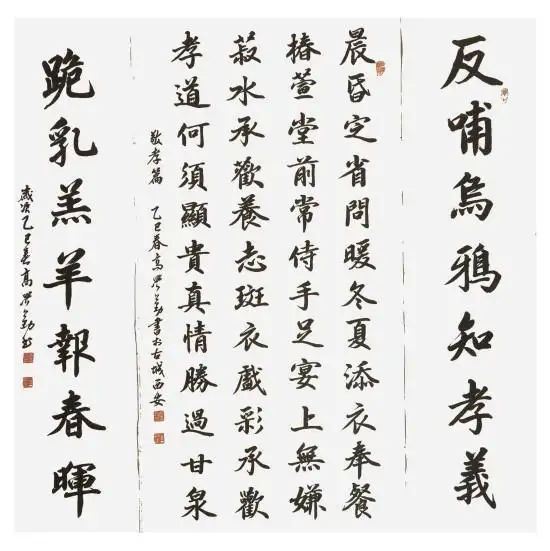 反哺烏鴉知孝義
晨昏定省問暖冬夏添衣奉餐
椿萱堂前常侍手足宴上無嫌
菽水承歡養志斑衣戲彩承歡
孝道何須顯貴真情勝過甘泉
敬孝篇 乙巳春高學勤書於古城西安
跪乳羔羊報春暉
歲次乙巳春高學勤書